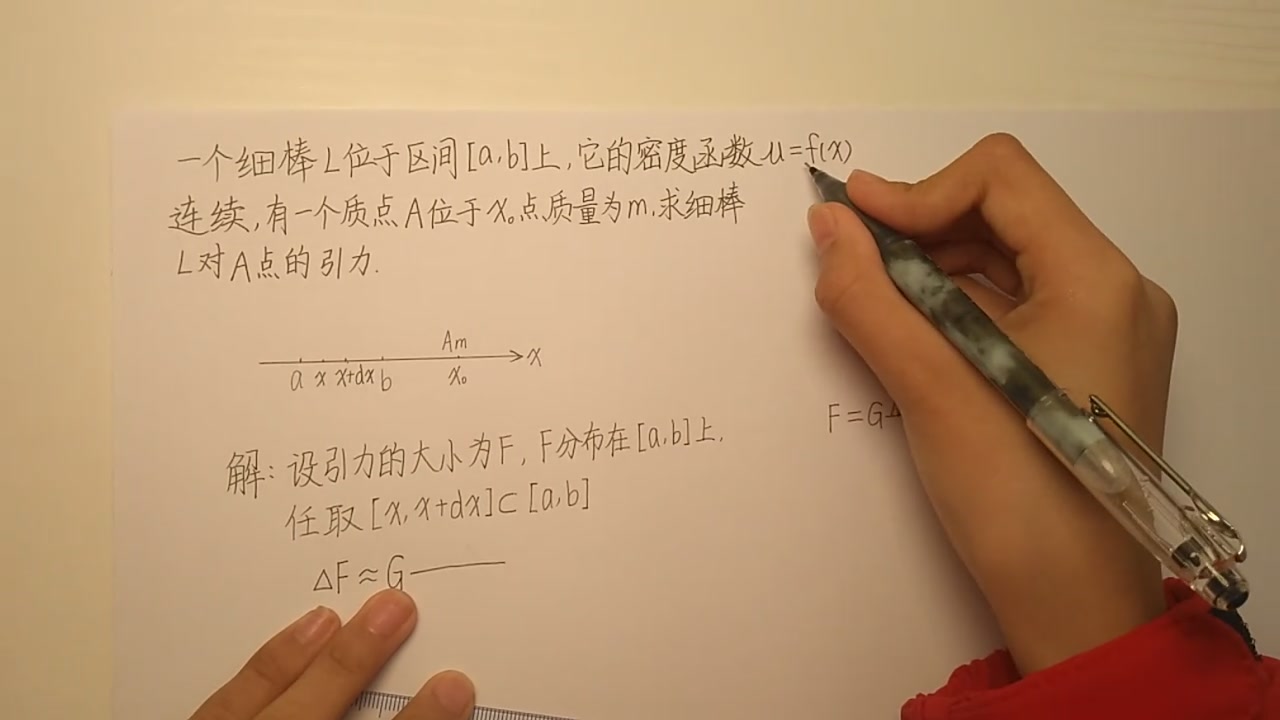 一个细棒L位于区间[a,b]上,它的密度函数u=f(x)
连续,有一个质点A位于x₀点,质量为m,求细棒
L对A点的引力.
Am
a x x+dx b x₀ x
解:设引力的大小为F,F分布在[a,b]上,
任取[x,x+dx]⊂[a,b]
ΔF≈G
F=G